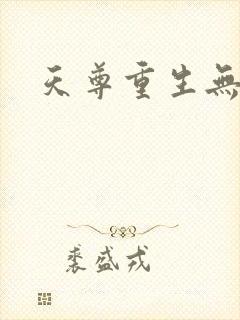 天尊重生無
裘盛戎